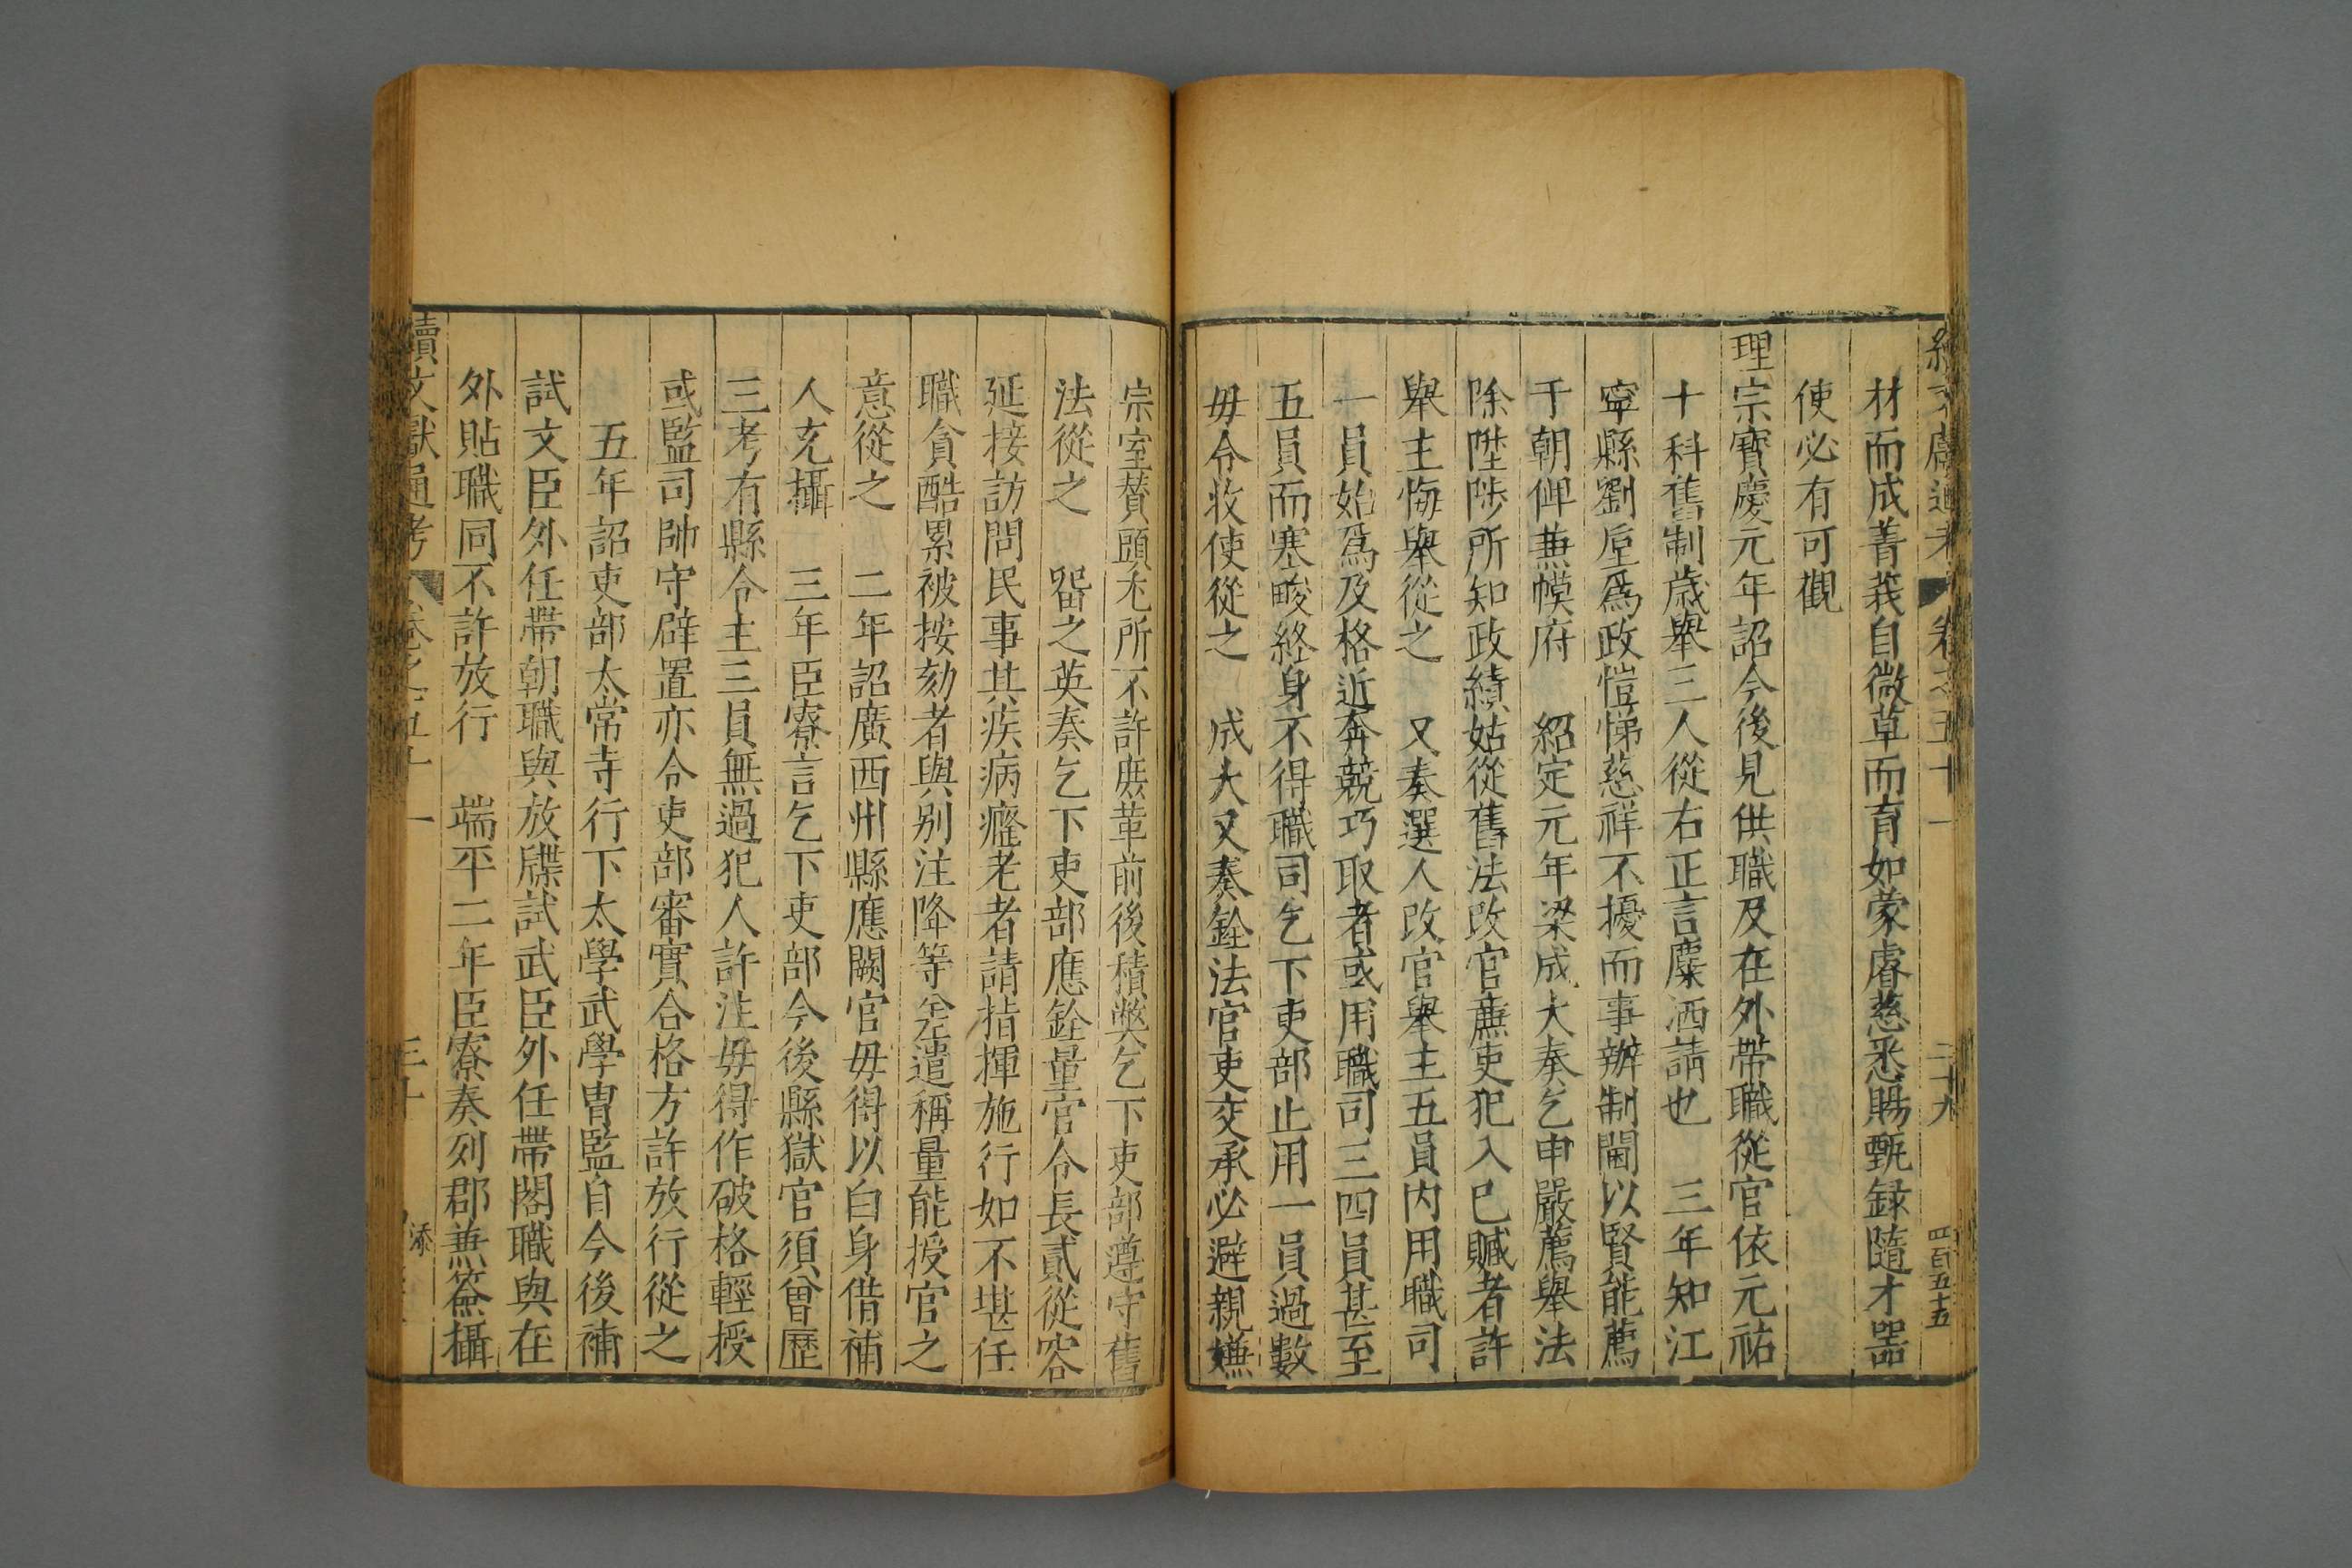 續文獻通考 卷之五十一 二十九 四百五十五
材而成菁莪自微草而育如蒙睿慈悉賜甄録隨才器
使必有可觀
理宗寶慶元年詔今後見供職及在外帶職從官依元祐
十科舊制歲舉三人從右正言麋洒請也 三年知江
寧縣劉垕爲政愷悌慈祥不擾而事辦制閫以賢能薦
于朝俾兼幙府 紹定元年梁成大奏乞申嚴薦舉法
除陞陟所知政績姑從舊法改官廉吏犯入已贓者許
舉主悔舉從之 又奏選人改官舉主五員内用職司
一員始爲及格近奔競巧取者或用職司三四員甚至
五員而寒畯終身不得職司乞下吏部止用一員過數
毋令收使從之 成大又奏銓法官吏交承必避親嫌
宗室賛頭尤所不許庻革前後積獘乞下吏部遵守舊
法從之 留之英奏乞下吏部應銓量官令長貳從容
延接訪問民事其疾病癃老者請指揮施行如不堪任
職貪酷累被按劾者與别注降等差遣稱量能授官之
意從之 二年詔廣西州縣應闕官毋得以白身借補
人充攝 三年臣寮言乞下吏部今後縣獄官須曾歷
三考有縣令主三員無過犯人許注毋得作破格輕授
或監司帥守辟置亦令吏部審實合格方許放行從之
五年詔吏部太常寺行下太學武學胄監自今後補
試文臣外任帶朝職與放牒試武臣外任帶閣職與在
外貼職同不許放行 端平二年臣寮奏列郡兼簽攝
續文獻通考 卷之五十一 三十 添